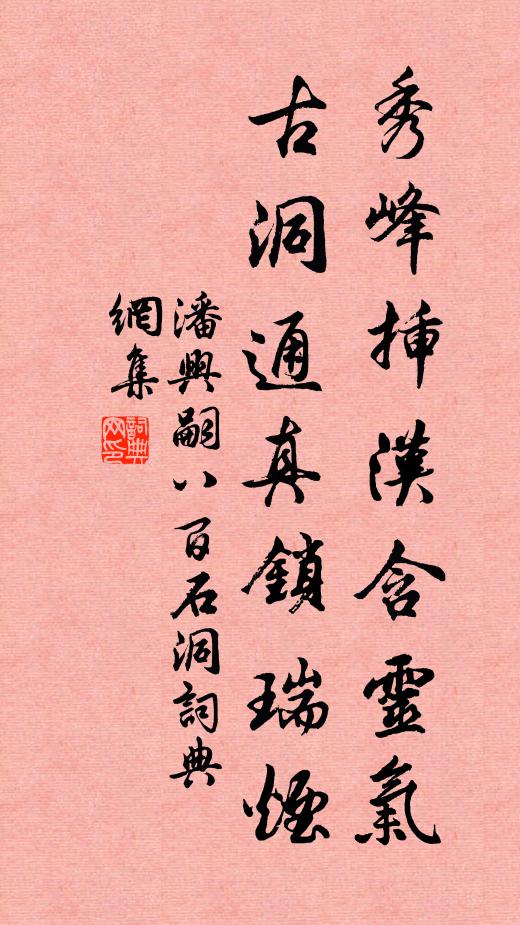 秀峰揷漢含靈氣
古洞通真鎖瑞煙
潘興嗣八百石洞詞典
網集
詞典
网印